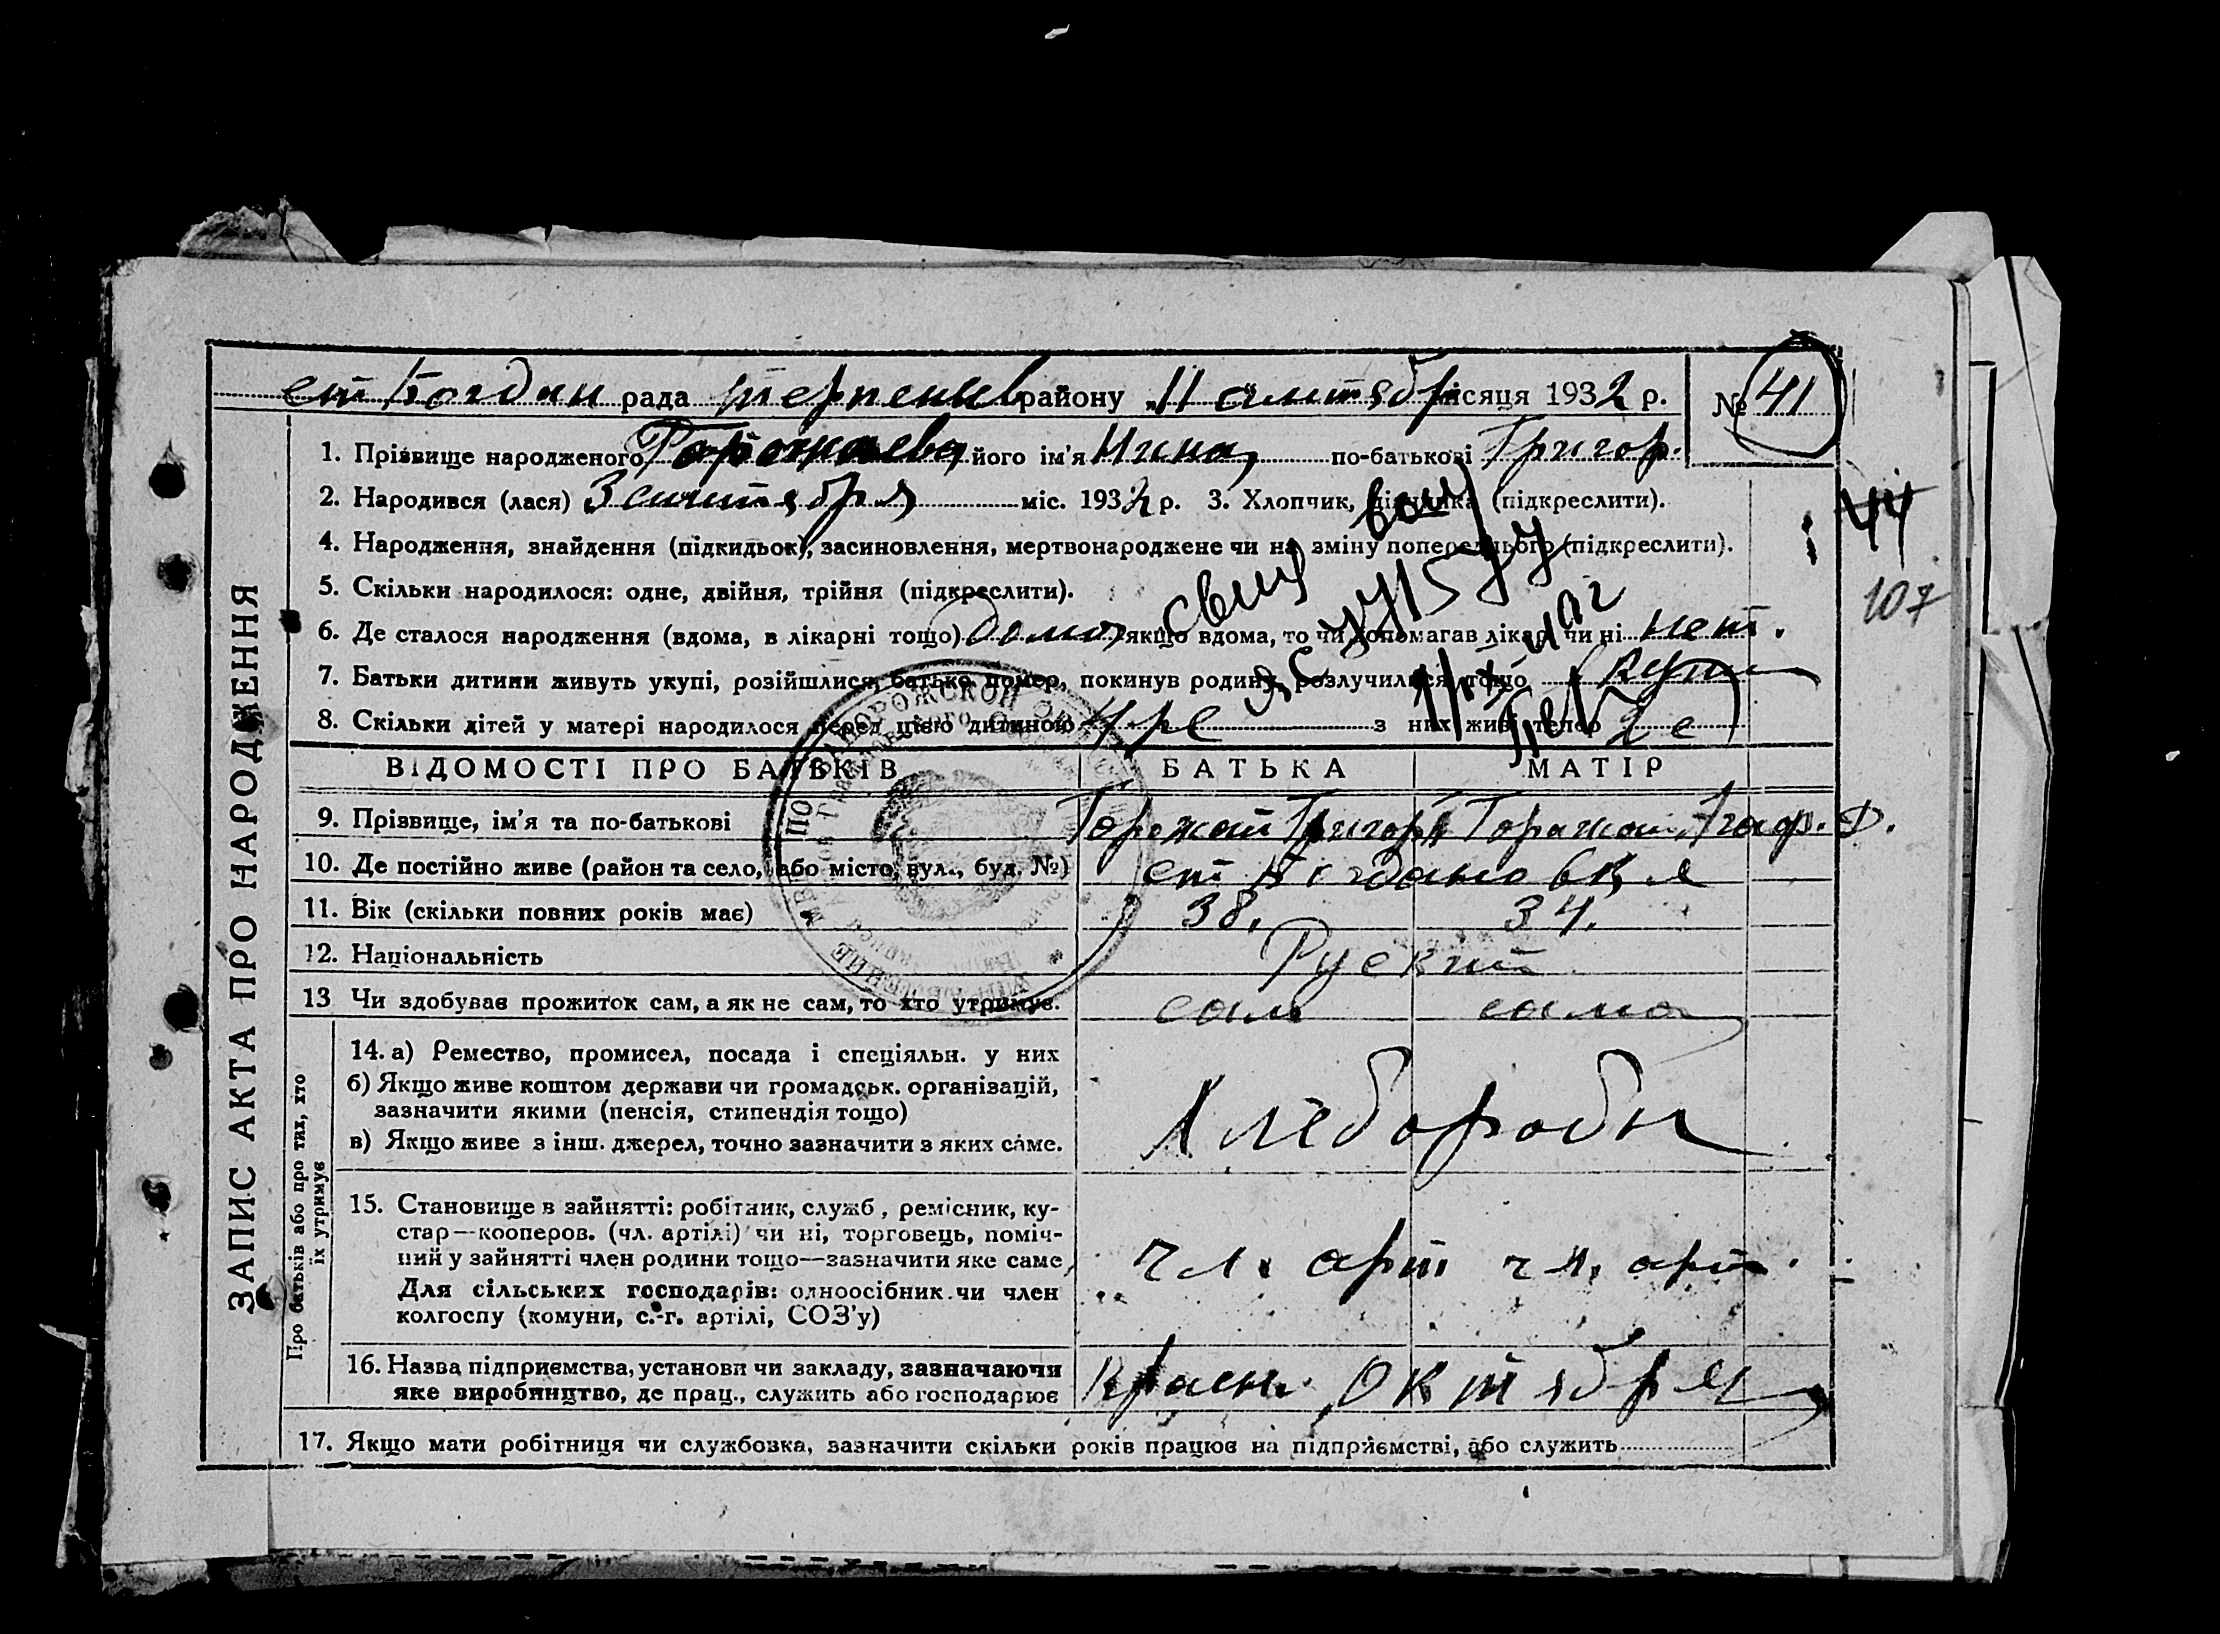 ст Богдан рада терпенив району "11" октября місяця 1932 р. № 41
1. Прізвище народженого його ім'я Нина, по-батькові Григор.
2. Народився (лася) 3 октября міс. 1932 р. 3. Хлопчик, дівчинка (підкреслити).
4. Народження, знайдення (підкидьок), засиновлення, мертвонароджене чи на зміну попереднього (підкреслити).
44
5. Скільки народилося: одне, двійня, трійня (підкреслити).
107
6. Де сталося народження (вдома, в лікарні тощо) дома, якщо вдома, то чи допомагав лікар, чи ні нет.
7. Батьки дитини живуть укупі, розійшлися, батько помер, покинув родину, розлучилися тощо
8. Скільки дітей у матері народилося перед цією дитиною з них живі тепер 2 е
ВІДОМОСТІ ПРО БАТЬКІВ БАТЬКА МАТІР
9. Прізвище, ім'я та по-батькові
10. Де постійно живе (район та село, або місто, вул., буд. №) ст Богдановка
11. Вік (скільки повних років має) 38. 34.
12. Національність Руский
13 Чи здобував прожиток сам, а як не сам, то хто утримує. сам сама
14. а) Ремество, промисел, посада і спеціяльн. у них
б) Якщо живе коштом держави чи громадськ. організацій,
зазначити якими (пенсія, стипендія тощо)
в) Якщо живе з інш. джерел, точно зазначити з яких саме.
Хлебороби
15. Становище в зайнятті: робітник, служб, ремісник, ку-
стар—кооперов. (чл. артілі) чи ні, торговець, поміч-
ний у зайнятті член родини тощо—зазначити яке саме,
Для сільських господарів: одноосібник чи член
колгоспу (комуни, с.-г. артілі, СОЗ'у)
чл. арт чл. арт.
16. Назва підприємства, установи чи закладу, зазначаючи
яке виробництво, де прац., служить або господарює
Красн. Октября
17. Якщо мати робітниця чи службовка, зазначити скільки років працює на підприємстві, або служить
ЗАПИС АКТА ПРО НАРОДЖЕННЯ
Про батьків або про тих, хто
їх утримує